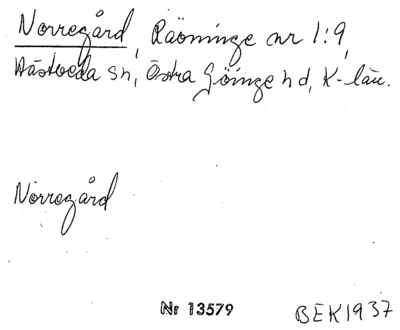 Norregård, Raöninge nr 1:9,
Hästveda sn, Östra Göinge hd, K-län.
Norregård
Nr 13579 BEK1937